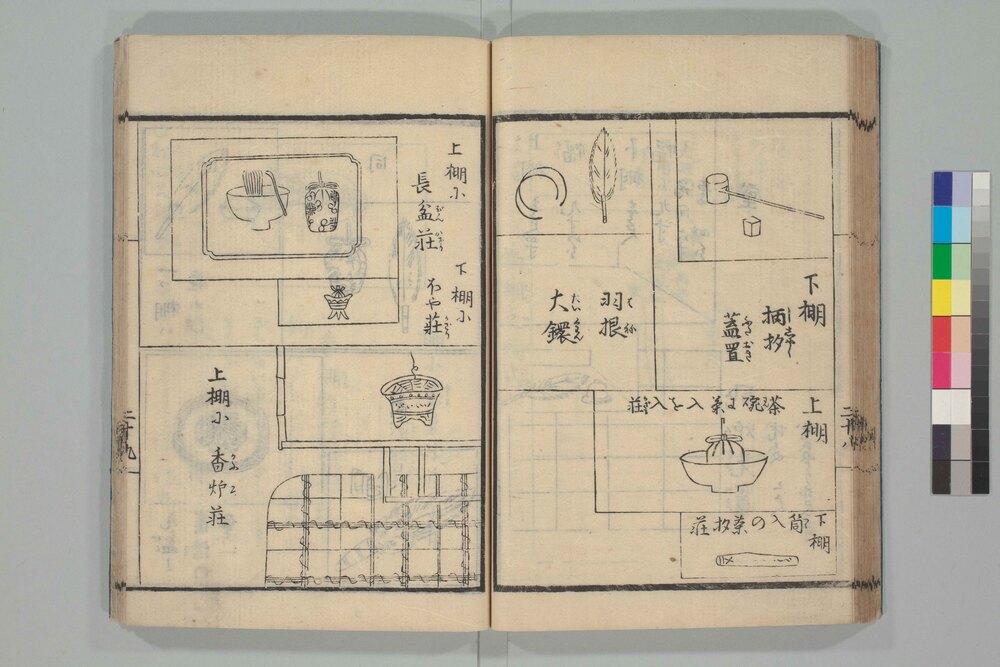 下棚
柄杓
蓋置
羽根
大鐶
上棚
茶碗に茶入を入荘
下棚
筒入の茶杓荘
上棚に
長盆荘
下棚に
ほや荘
上棚に 香炉荘
二十八
二十九